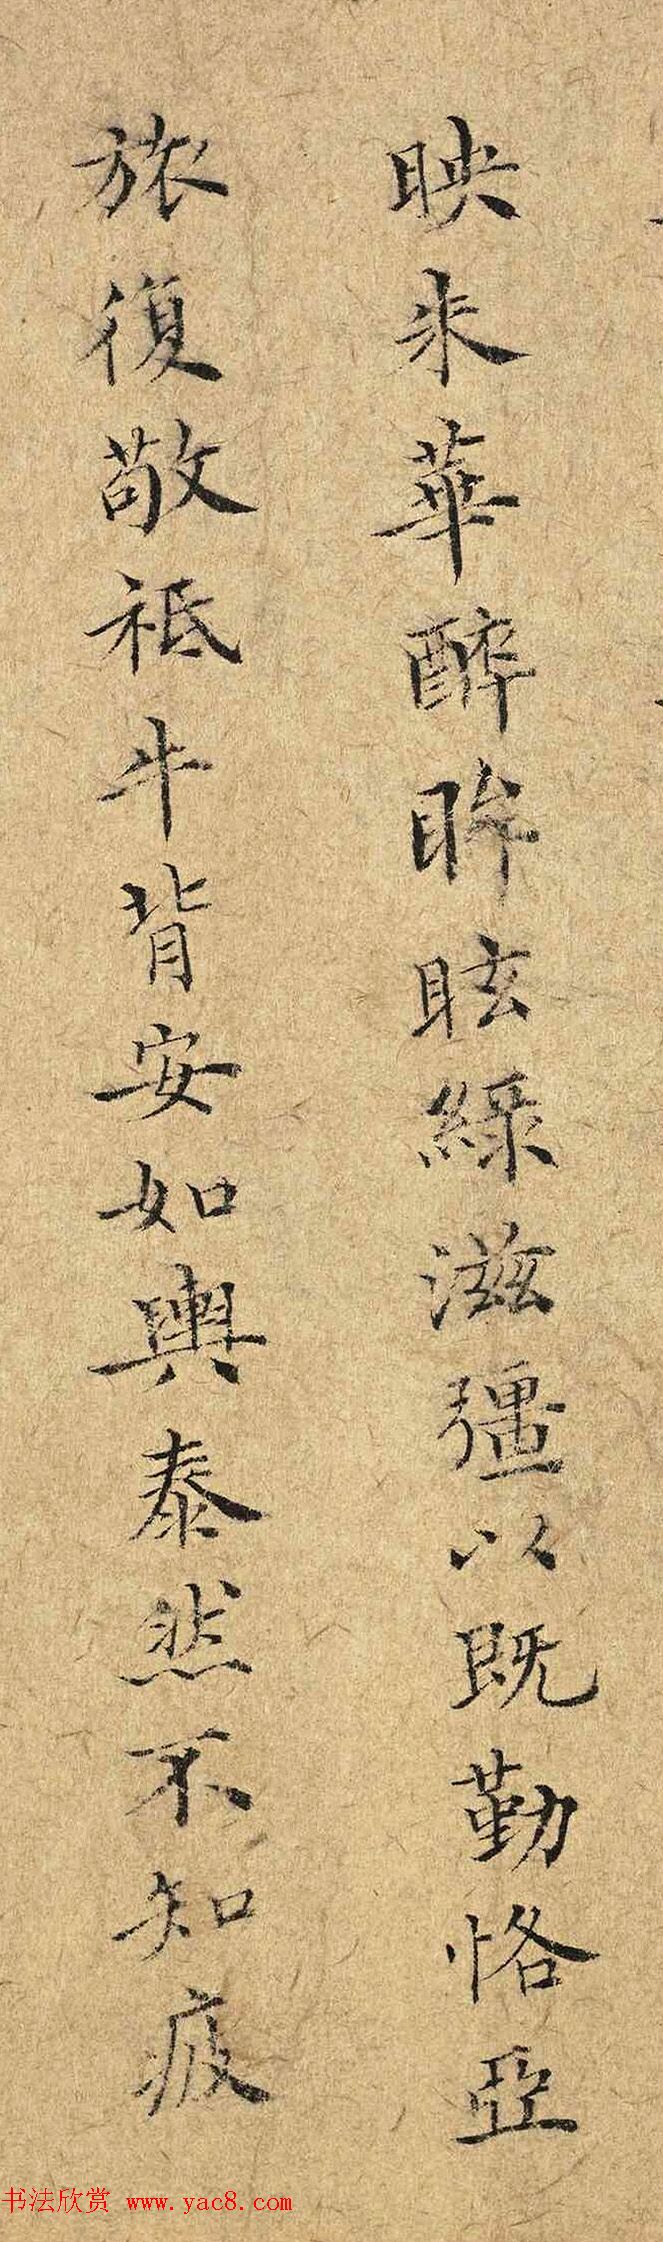 映朱華醉眸眩綠滋彊以既勤恪亞
旅復敬祗牛背安如輿泰然不知疲
书法欣赏 www.yac8.com